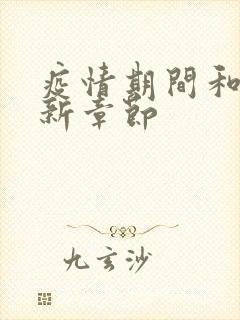 疫情期間和
新章節
九玄沙